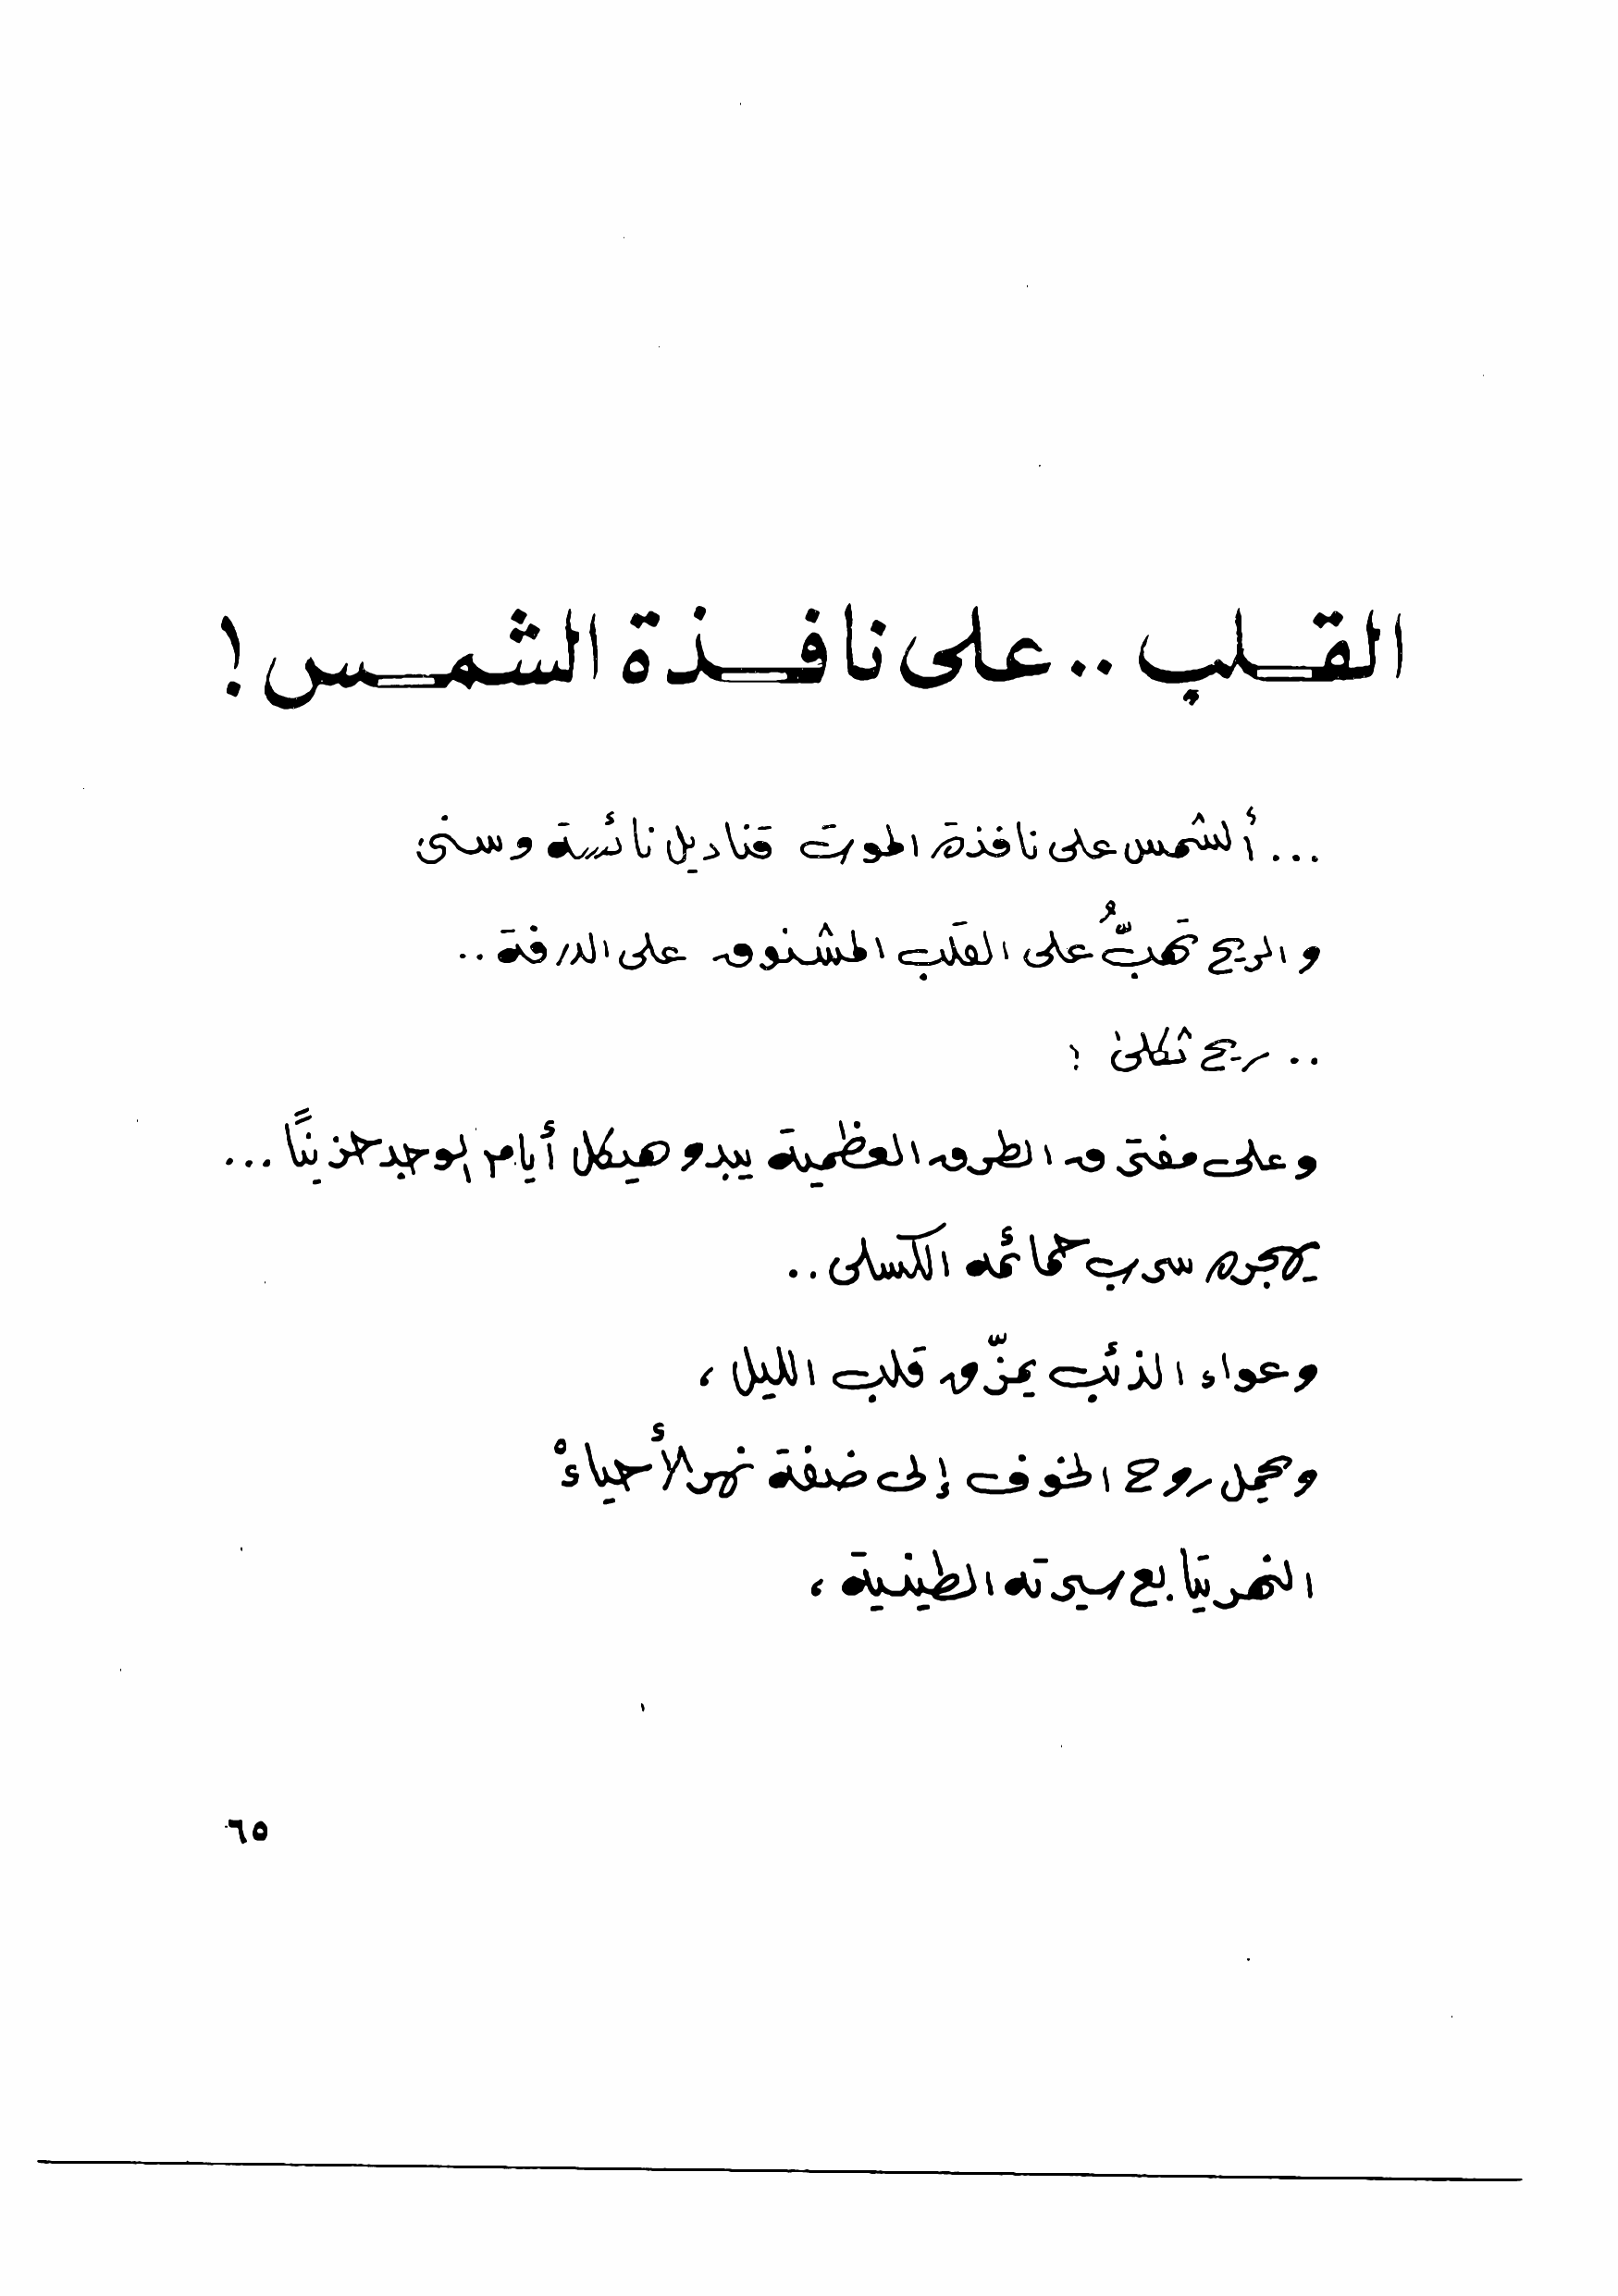 القلب .. على نافذة الشمس !
... ألشمس على نافذة الموت قناديل نائسة وسنى
والريح تهبُّ على القلب المشنوق على الدرفة ..
.. ريح ثكلى !
وعلى مفترق الطرق العظمية يبدو هيكل أيام الوجد حزينًا ...
يهجره سرب حمائمه الكسلى ..
وعواء الذئب يمزّق قلب الليل ،
ويحمل روح الخوف إلى ضفة نهر الأحياءْ
النهر يتابع سيرته الطينية ،
٦٥